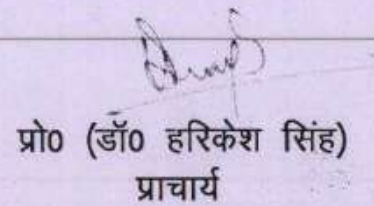 प्रो0 (डॉ0 हरिकेश सिंह)
प्राचार्य